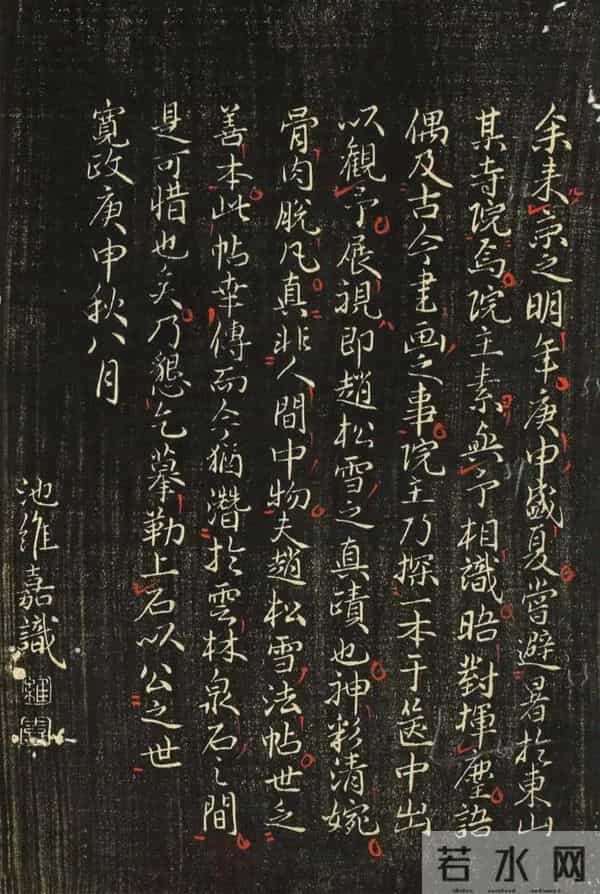 余来京之明年庚申盛夏嘗避暑於東山
某寺院焉院主素無予相識晤對揮麈語
偶及古今書画之事院主乃探一本于篋中出
以觀予展視即趙松雪之真蹟也神彩清婉
骨肉脱凡真非人間中物夫趙松雪法帖世之
善本此帖幸傳而今猶潛於雲林泉石之間
是可惜也矣乃懇乞摹勒上石以公之世
寛政庚申秋八月
池維嘉識
若水网